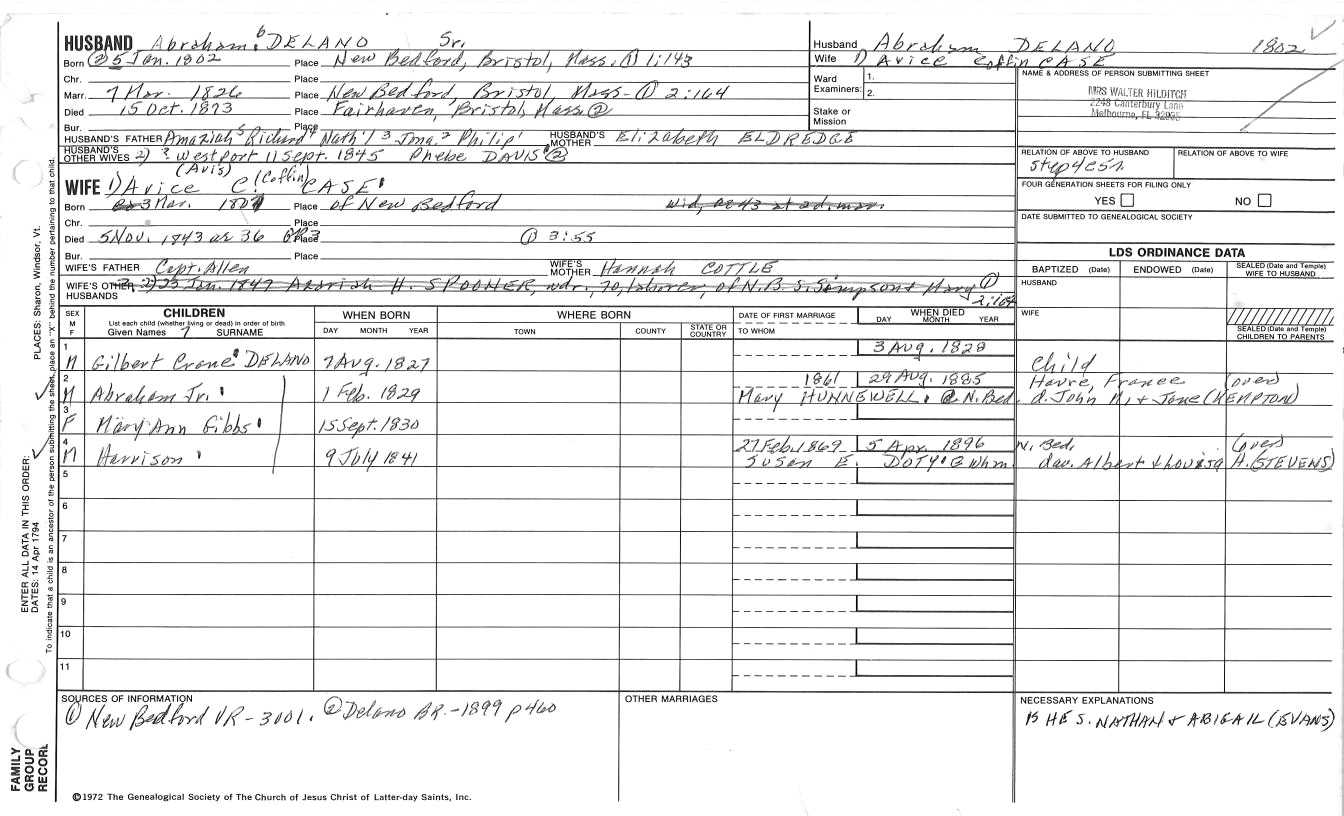 HUSBAND Abraham 6 DELANO Sr.
Born ② 5 Jan. 1802 Place New Bedford, Bristol, Mass. ① 1:143
Chr. Place
Marr. 7 Mar. 1826 Place New Bedford, Bristol, Mass- ① 2:164
Died 15 Oct. 1873 Place Fairhaven, Bristol, Mass ②
Bur. Place
HUSBAND'S FATHER Amaziah 5 Richard 4 Nath'l 3 Jona. 2 Philip 1 HUSBAND'S MOTHER Elizabeth ELDREDGE
HUSBAND'S OTHER WIVES 2) ? Westport 11 Sept. 1845 Phebe DAVIS ②
(Avis) (Coffin)
WIFE 1) Avice C. CASE
Born 3 Mar. 1807 Place of New Bedford wid, ae 43 at 2d. marr.
Chr. Place
Died 5 Nov. 1843 ae 36 GR3 Place ① 3:55
Bur. Place
WIFE'S FATHER Capt. Allen WIFE'S MOTHER Hannah COTTLE
WIFE'S OTHER HUSBANDS 2) 25 Jan. 1849 H. SPOONER, wdr, 70, laborer, of N.B. S. Simpson & Mary ① 2:164
Husband Abraham DELANO 1802
Wife 1) Avice Coffin CASE
Ward Examiners: 1. 2.
Stake or Mission
NAME & ADDRESS OF PERSON SUBMITTING SHEET
MRS WALTER HILDITCH
2248 Canterbury Lane
Melbourne, FL 32935
RELATION OF ABOVE TO HUSBAND RELATION OF ABOVE TO WIFE
FOUR GENERATION SHEETS FOR FILING ONLY
YES NO
DATE SUBMITTED TO GENEALOGICAL SOCIETY
LDS ORDINANCE DATA
BAPTIZED (Date) ENDOWED (Date) SEALED (Date and Temple) WIFE TO HUSBAND
HUSBAND
WIFE
SEALED (Date and Temple) CHILDREN TO PARENTS
SEX M F CHILDREN List each child (whether living or dead) in order of birth Given Names 7 SURNAME
WHEN BORN DAY MONTH YEAR
WHERE BORN TOWN COUNTY STATE OR COUNTRY
DATE OF FIRST MARRIAGE TO WHOM
WHEN DIED DAY MONTH YEAR
1 M Gilbert Crane DELANO 7 Aug. 1827 3 Aug. 1828 Child
2 M Abraham Jr. 1 Feb. 1829 1861 29 Aug. 1885 Havre, France (over)
Mary HUNNEWELL @ N. Bed. d. John M. & Jane (KEMPTON)
3 F Mary Ann Gibbs 15 Sept. 1830
4 M Harrison 9 July 1841 27 Feb. 1869 5 Apr. 1896 N. Bed. (over)
Susan E. DOTY @ Whm. dau. Albert & Louisa H. (STEVENS)
5
6
7
8
9
10
11
SOURCES OF INFORMATION
① New Bedford VR - 3001. ② Delano BR. - 1899 p 460
OTHER MARRIAGES
NECESSARY EXPLANATIONS
IS HE S. NATHAN & ABIGAIL (EVANS)
©1972 The Genealogical Society of The Church of Jesus Christ of Latter-day Saints, Inc.
FAMILY GROUP RECORD
ENTER ALL DATA IN THIS ORDER:
DATES: 14 Apr 1794
PLACES: Sharon, Windsor, Vt.
To indicate that a child is an ancestor of the person submitting the sheet, place an "X" behind the number pertaining to that child.